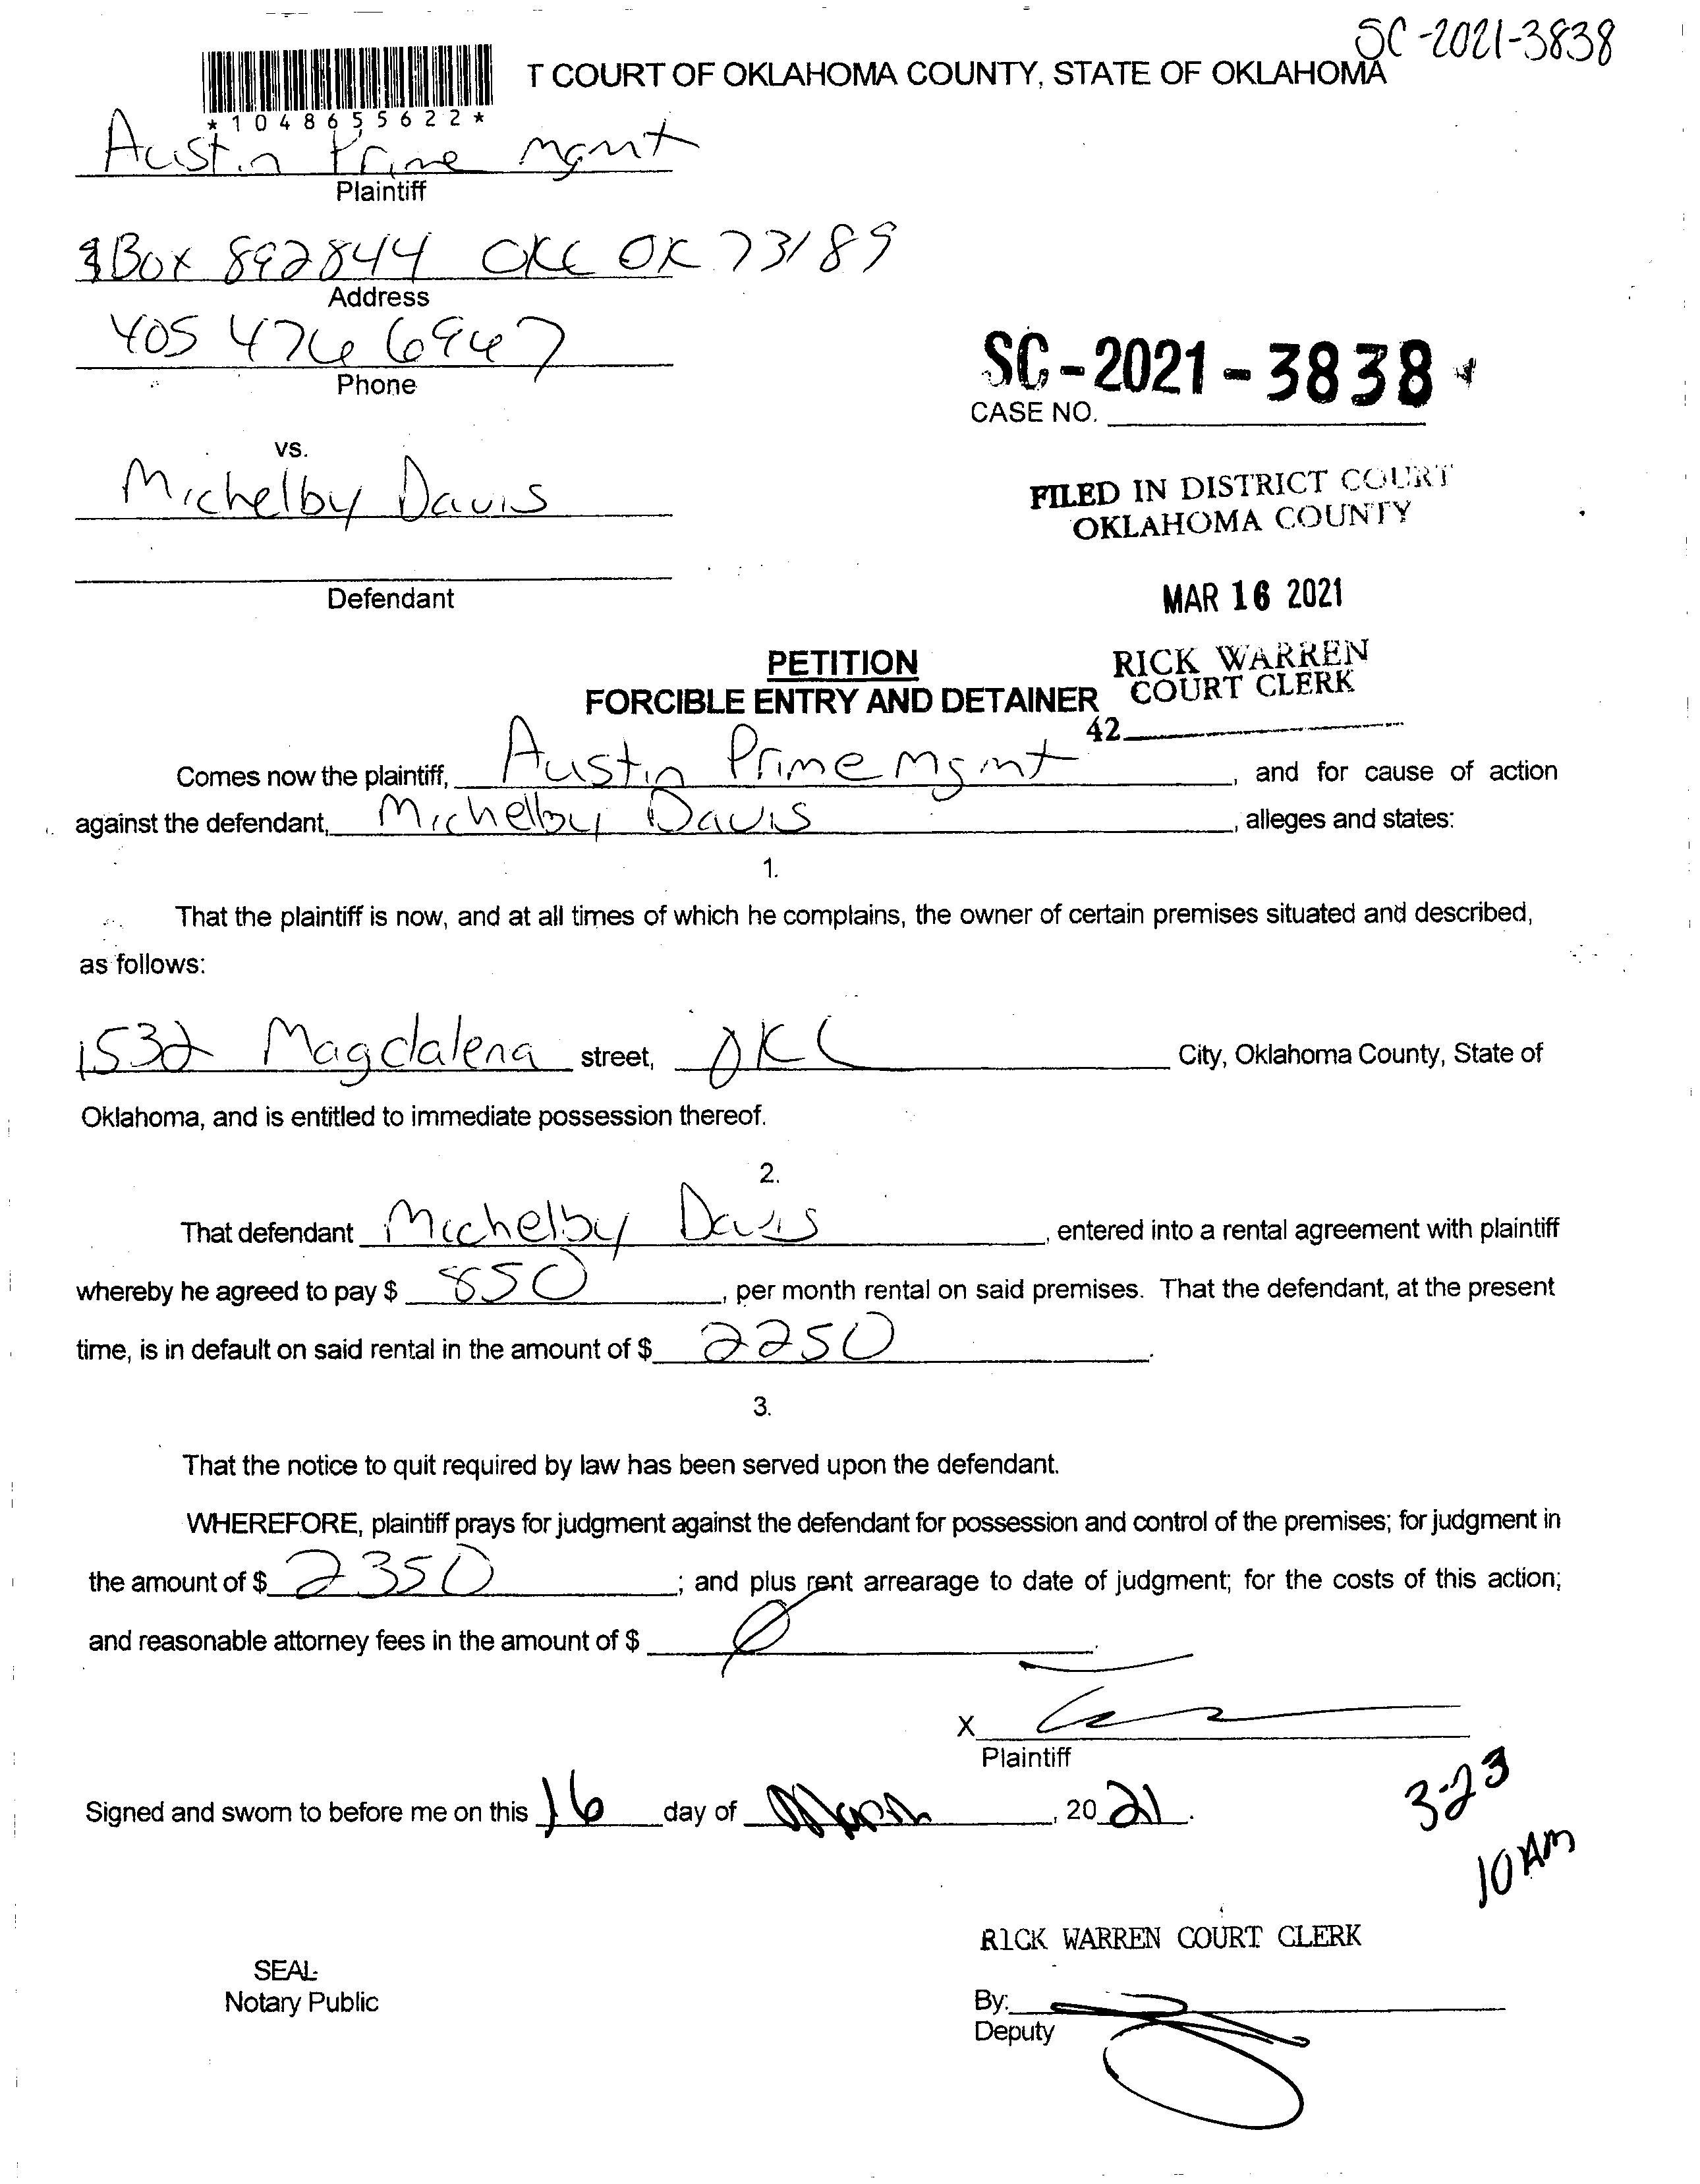 SC-2021-3838
T COURT OF OKLAHOMA COUNTY, STATE OF OKLAHOMA
*1048655622*
Austin Prime mgmt
Plaintiff
Box 892844 OKC OK 73189
Address
405 476 6947
Phone
SC-2021-3838
CASE NO.
vs.
Michelby Davis
FILED IN DISTRICT COURT
OKLAHOMA COUNTY
Defendant
MAR 16 2021
PETITION
RICK WARREN
FORCIBLE ENTRY AND DETAINER
COURT CLERK
42
Comes now the plaintiff, Austin Prime Mgmt, and for cause of action
against the defendant, Michelby Davis, alleges and states:
1.
That the plaintiff is now, and at all times of which he complains, the owner of certain premises situated and described,
as follows:
1532 Magdalena street, OKC City, Oklahoma County, State of
Oklahoma, and is entitled to immediate possession thereof.
2.
That defendant Michelby Davis, entered into a rental agreement with plaintiff
whereby he agreed to pay $ 850, per month rental on said premises. That the defendant, at the present
time, is in default on said rental in the amount of $ 2250.
3.
That the notice to quit required by law has been served upon the defendant.
WHEREFORE, plaintiff prays for judgment against the defendant for possession and control of the premises; for judgment in
the amount of $ 2350; and plus rent arrearage to date of judgment; for the costs of this action;
and reasonable attorney fees in the amount of $ 0.
X
Plaintiff
3-23
Signed and sworn to before me on this 16 day of March, 2021.
10 AM
RICK WARREN COURT CLERK
SEAL
Notary Public
By:
Deputy